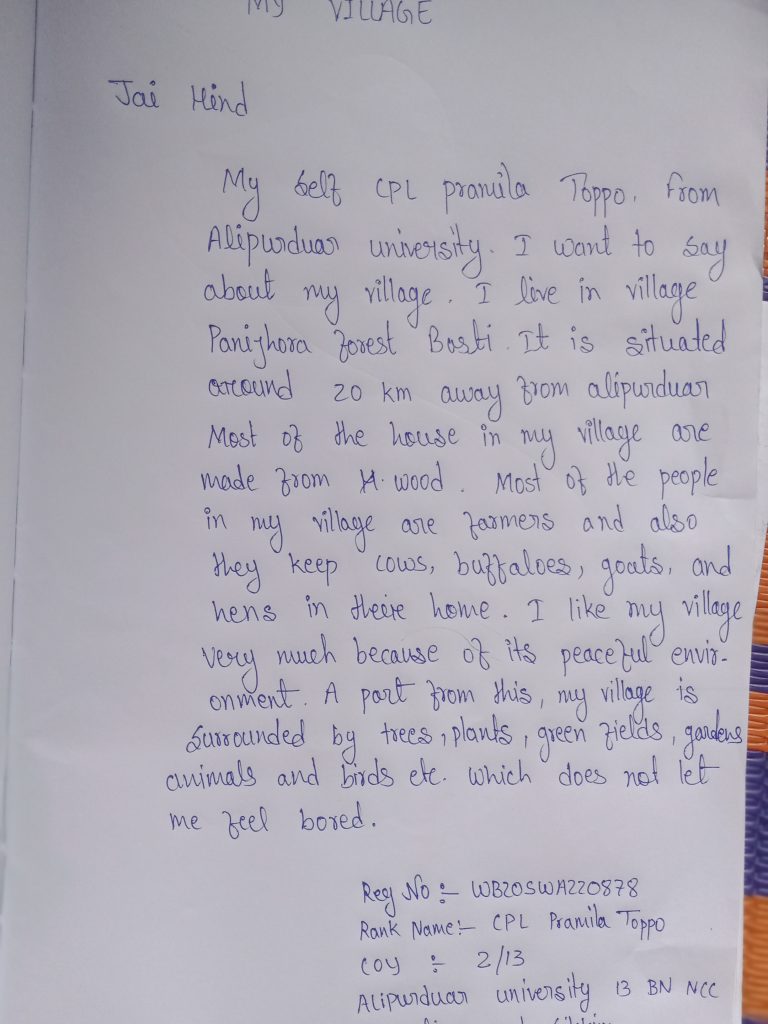 MY VILLAGE
Jai Hind
My self CPL pramila Toppo. From
Alipurduar university. I want to say
about my village. I live in village
Panijhora forest Basti. It is situated
around 20 km away from alipurduar
Most of the house in my village are
made from wood. Most of the people
in my village are farmers and also
they keep cows, buffaloes, goats, and
hens in theire home. I like my village
very much because of its peaceful envir-
onment. A part from this, my village is
surrounded by trees, plants, green fields, gardens
animals and birds etc. which does not let
me feel bored.
Reg No :- WB20SWA220878
Rank Name:- CPL Pramila Toppo
COY :- 2/13
Alipurduar university 13 BN NCC